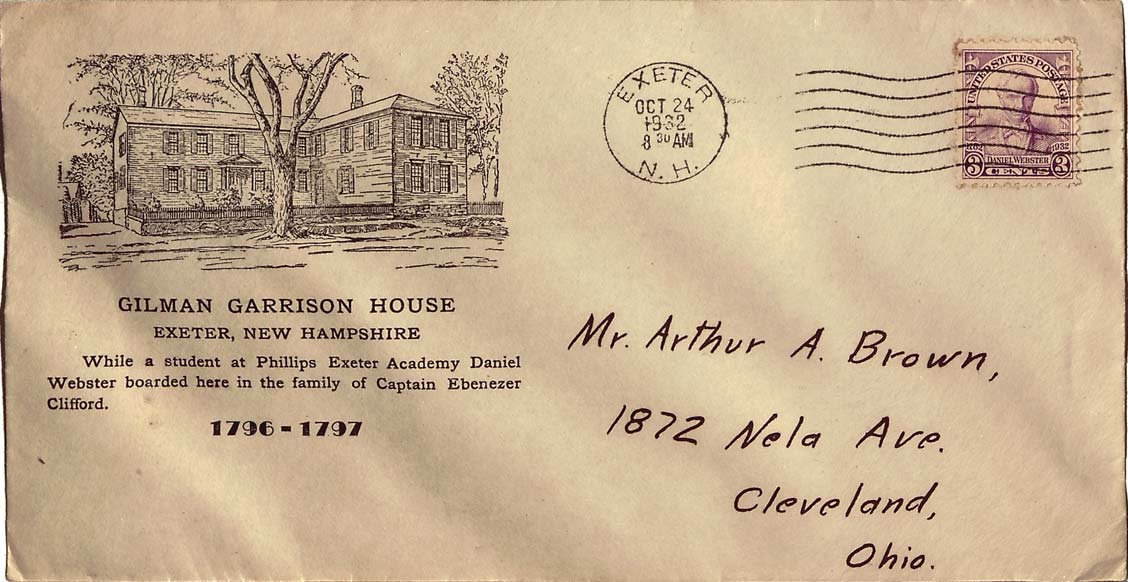 EXETER
OCT 24
1932
8 30 AM
N. H.
UNITED STATES POSTAGE
1932
DANIEL WEBSTER
3 CENTS 3
GILMAN GARRISON HOUSE
EXETER, NEW HAMPSHIRE
While a student at Phillips Exeter Academy Daniel
Webster boarded here in the family of Captain Ebenezer
Clifford.
1796-1797
Mr. Arthur A. Brown,
1872 Nela Ave.
Cleveland,
Ohio.